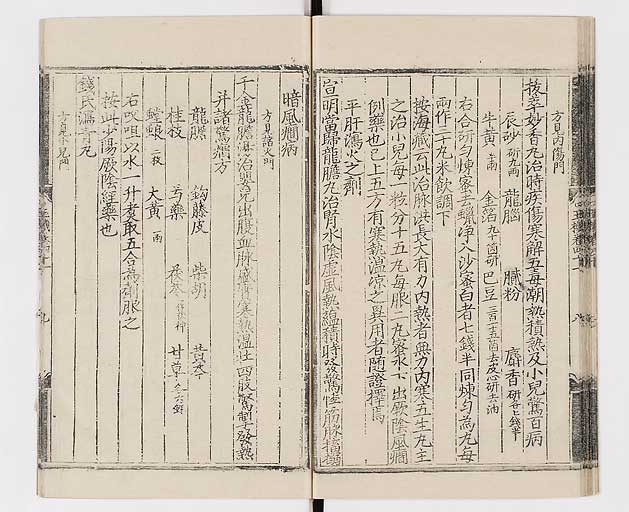 方見内傷門
拔萃妙香丸治時疾傷寒解五毒潮熱積熱及小兒驚百病
辰砂研九兩 龍腦 膩粉 麝香研各七錢半
牛黃半兩 金箔九十箇研 巴豆三百一十五箇去皮心研去油
右合研勻煉蜜去蠟淨入沙蜜白者七錢半同煉勻為丸每
兩作三十丸米飲調下
按海藏云此治脉洪長大有力内熱者無力内寒五生丸主
之治小兒每一粒分十五丸每服二丸蜜水下 出厥陰風癎
例藥也已上五方有寒熱溫涼之異用者隨證擇焉
平肝瀉火之劑
宣明當歸龍膽丸治腎水陰虛風熱蘊積時發驚悸筋脉搐搦
方見諸火門
暗風癎病
千金龍膽湯治嬰兒出腹血脉盛實寒熱溫壯四肢驚掣發熱
并諸驚癎方
龍膽 鉤藤皮 柴胡 黃芩
桂枝 芍藥 茯苓 甘草各六銖
蜣蜋二枚 大黃一兩
右㕮咀以水一升煮取五合為劑服之
按此少陽厥陰經藥也
錢氏瀉青丸
方見小兒門